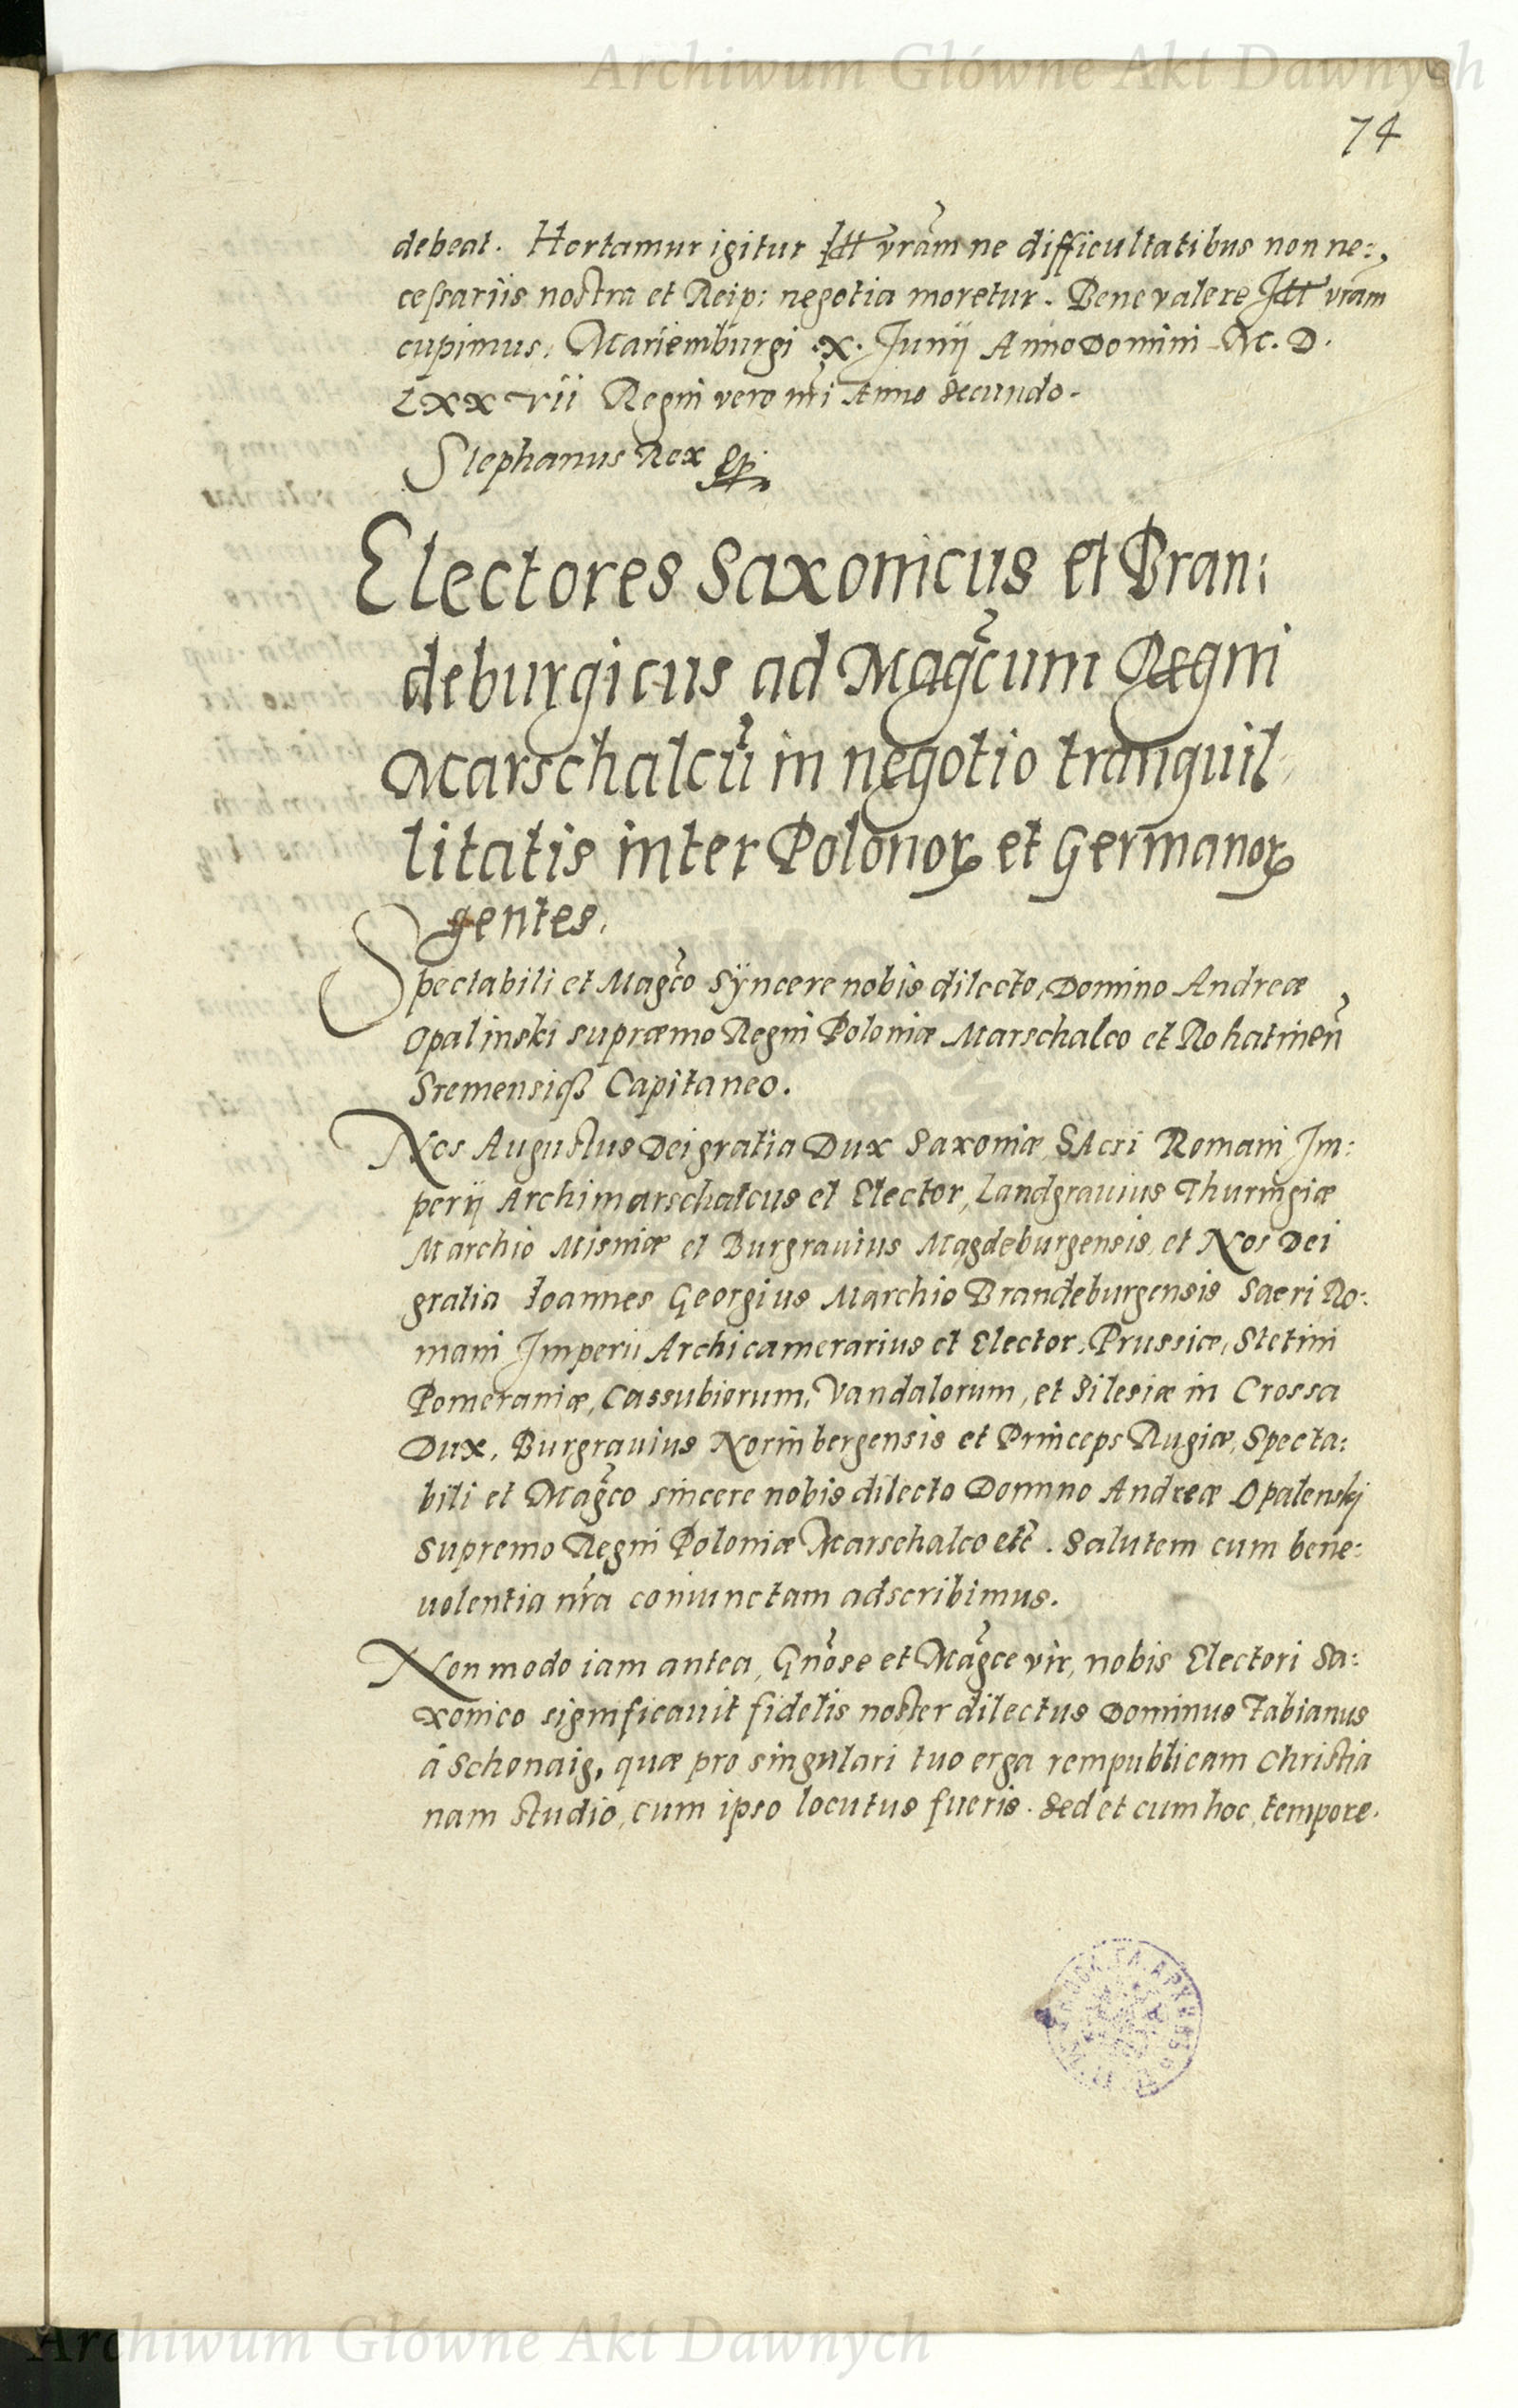 Archiwum Główne Akt Dawnych
74
debeat. Hortamur igitur vram ne difficultatibus non ne:
ceßariis nostra et Reip: negotia moretur. Bene valere vram
cupimus, Mariemburgi .X. Junij Anno Domini M. D.
LXXVii Regni vero nri Anno Secundo.
Stephanus Rex
Electores Saxonicus et Bran:
deburgicus ad Magcum Regni
Marschalcū in negotio tranquil
litatis inter Polonoꝝ et Germanoꝝ
gentes.
Spectabili et Magco Sÿncere nobis dilecto, Domino Andreæ
Opalinski supræmo Regni Poloniæ Marschalco et Rohatinen
Sremensiqꝫ Capitaneo.
Nos Augustus Dei gratia Dux Saxoniæ, SAcri Romani Im:
perij Archimarschalcus et Elector, Landgrauius Thuringiæ
Marchio Misniæ et Burgrauius Magdeburgensis, et Nos Dei
gratia Ioannes Georgius Marchio Brandeburgensis Sacri Ro:
mani Imperii Archicamerarius et Elector, Prussiæ, Stetini
Pomeraniæ, Cassubiorum, Vandalorum, et Silesiæ in Crossa
Dux, Burgrauius Norinbergensis et Princeps Rugiæ, Specta:
bili et Magco sincere nobis dilecto Domino Andreæ Opalenskj
Supremo Regni Poloniæ Marschalco etc. Salutem cum bene:
uolentia nra coniunctam adscribimus.
Non modo iam antea, Gnose et Magce vir, nobis Electori Sa:
xonico significauit fidelis noster dilectus Dominus Fabianus
á Schonaig, quæ pro singulari tuo erga rempublicam Christia
nam studio, cum ipso locutus fueris. Sed et cum hoc tempore.
Archiwum Główne Akt Dawnych